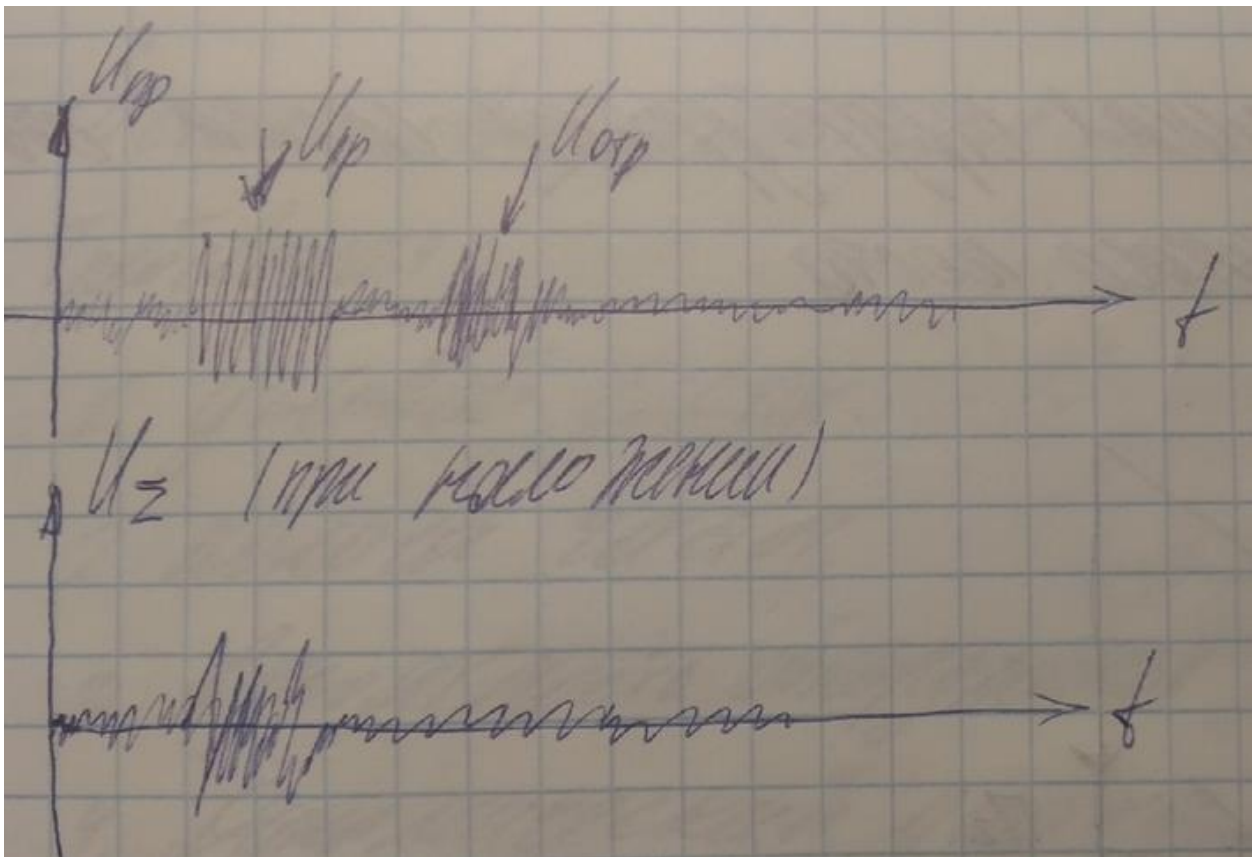 Uпр
Uпр Uотр
t
UΣ (при наложении)
t